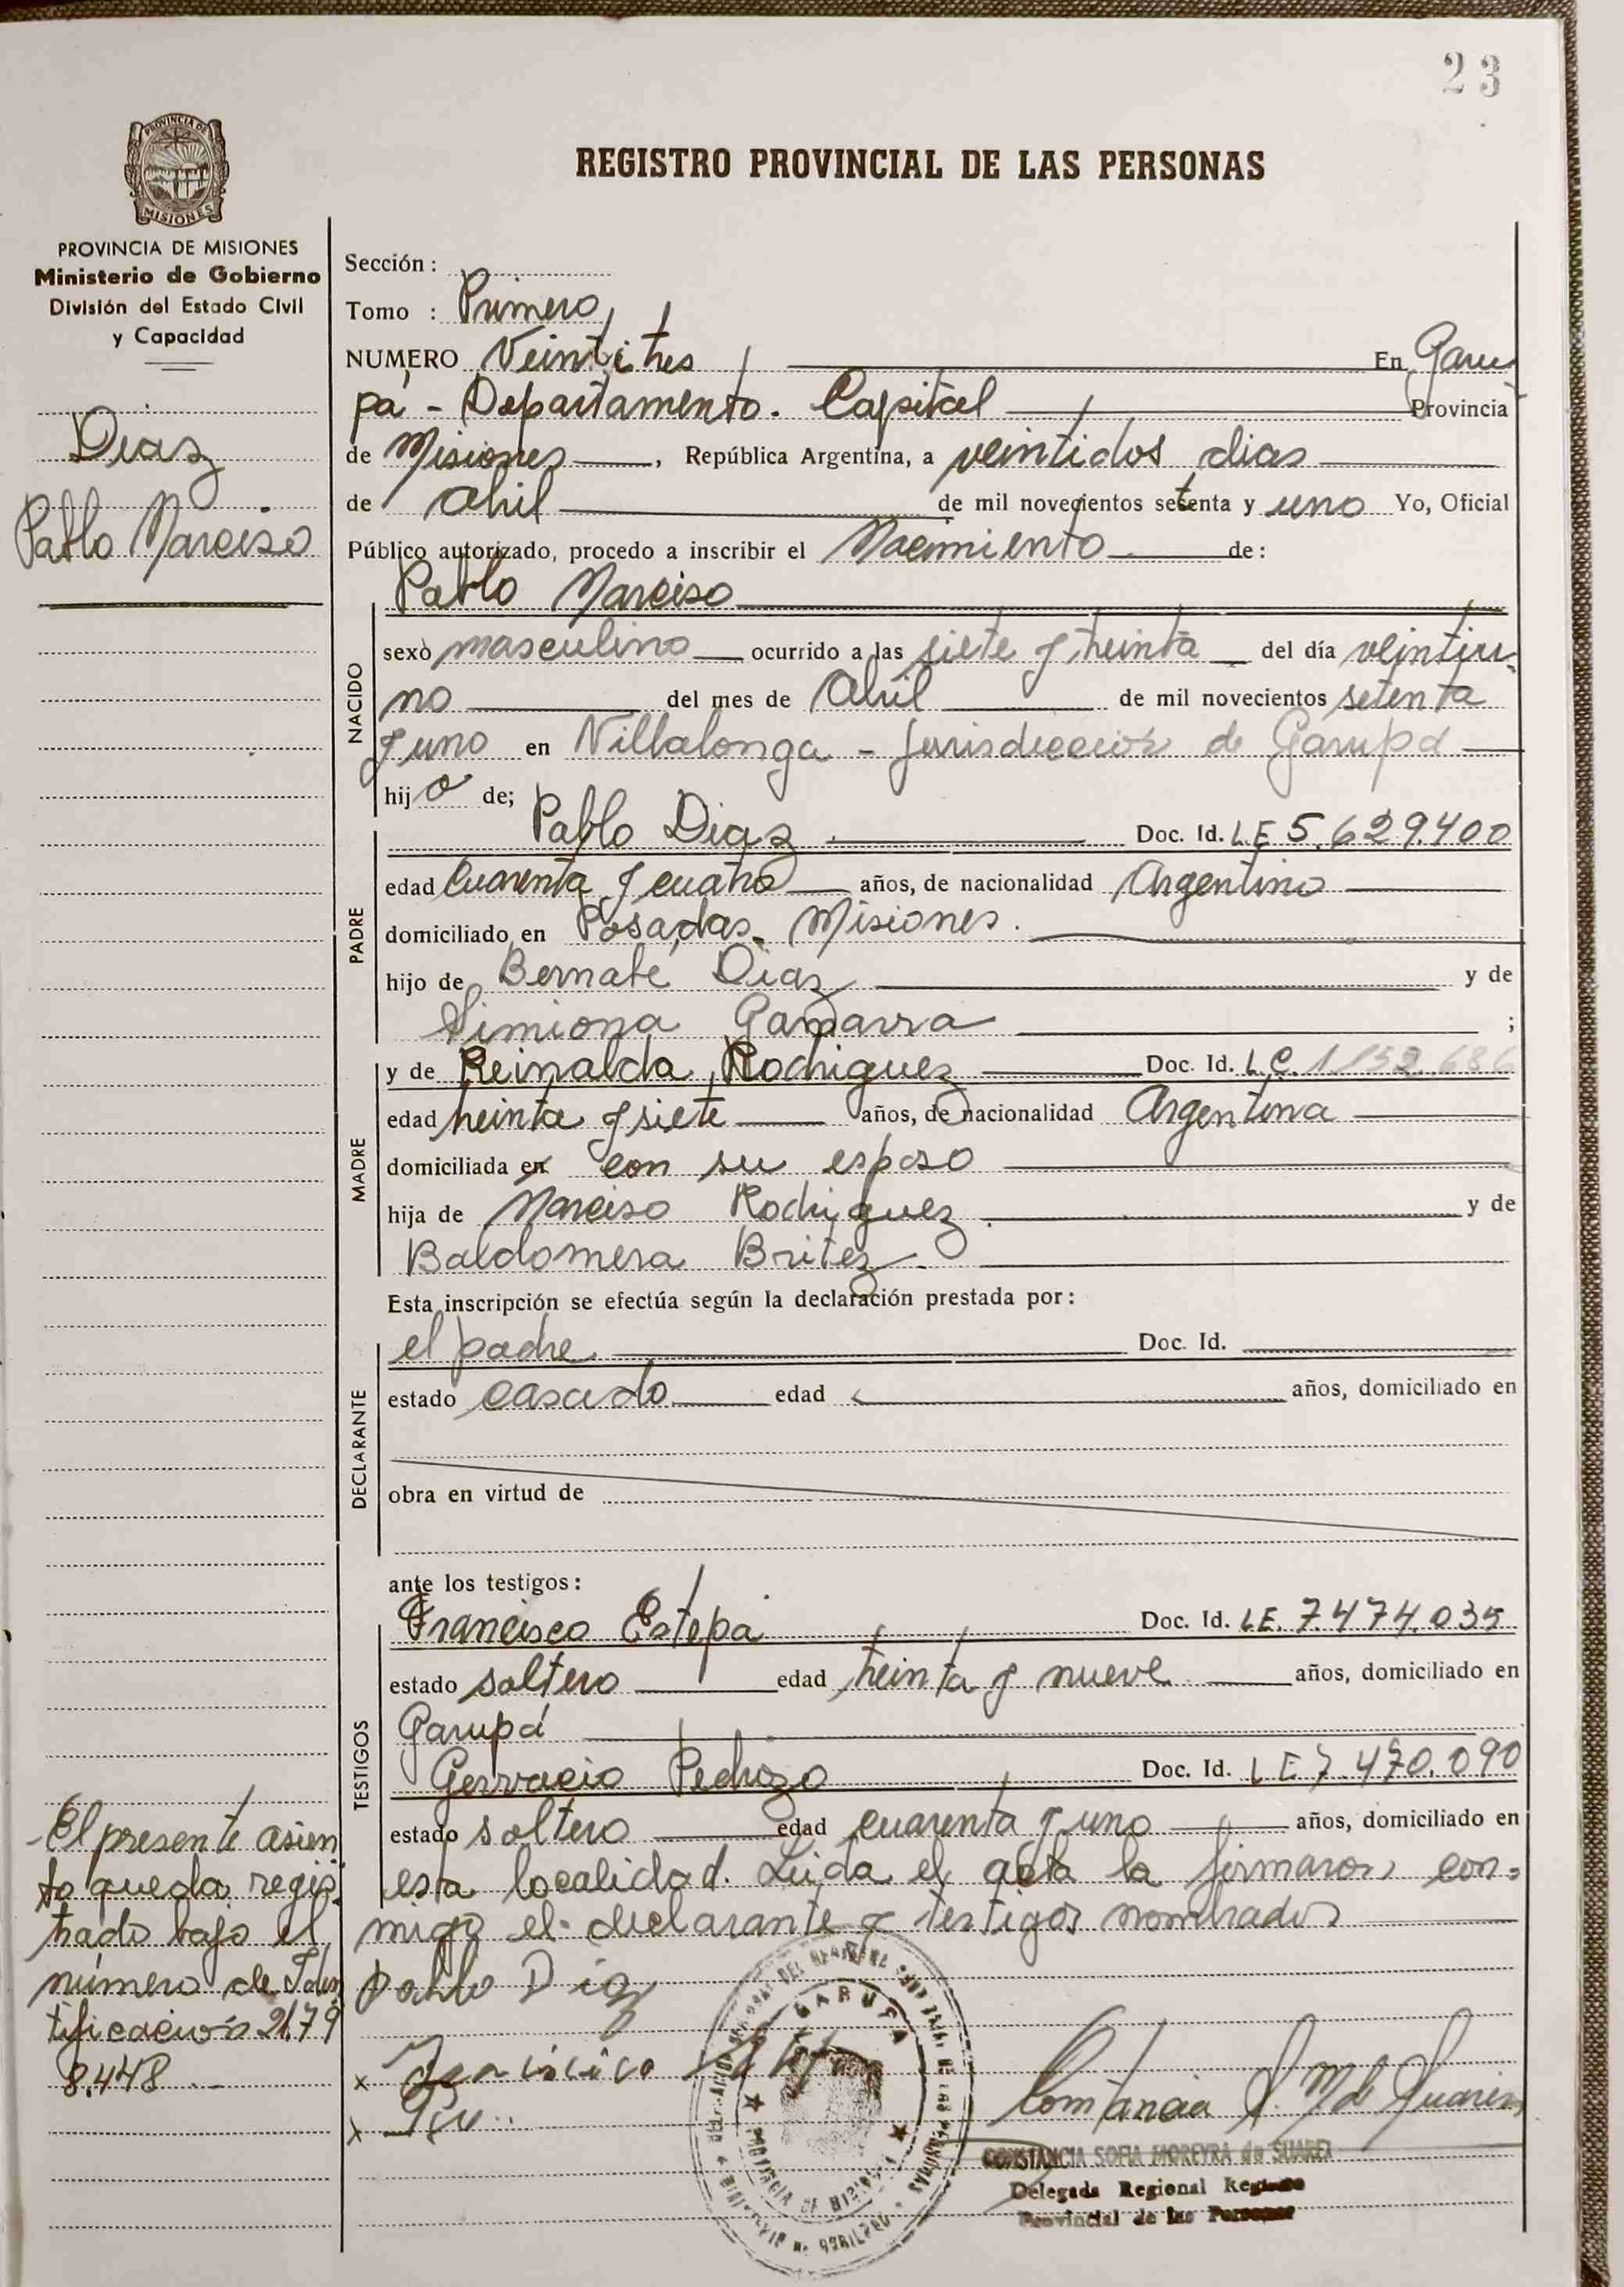 23
PROVINCIA DE
MISIONES
PROVINCIA DE MISIONES
Ministerio de Gobierno
División del Estado Civil
y Capacidad
Diaz
Pablo Narciso
REGISTRO PROVINCIAL DE LAS PERSONAS
Sección :
Tomo : Primero
NUMERO Veintitres En Garu
pá - Departamento. Capital Provincia
de Misiones, República Argentina, a veintidos dias
de Abril de mil novecientos setenta y uno Yo, Oficial
Público autorizado, procedo a inscribir el Nacimiento de:
Pablo Narciso
NACIDO
sexo masculino ocurrido a las siete y treinta del día veintiu-
no del mes de Abril de mil novecientos setenta
y uno en Villalonga - Jurisdiccion de Garupá
hijo de;
PADRE
Pablo Diaz Doc. Id. LE 5.629.400
edad Cuarenta y cuatro años, de nacionalidad Argentino
domiciliado en Posadas. Misiones.
hijo de Bernabé Diaz y de
Simiona Gamarra ;
MADRE
y de Reinalda Rodriguez Doc. Id. L C. 1152.686
edad treinta y siete años, de nacionalidad Argentina
domiciliada en con su esposo
hija de Narciso Rodriguez y de
Baldomera Britez
Esta inscripción se efectúa según la declaración prestada por:
DECLARANTE
el padre Doc. Id.
estado casado edad años, domiciliado en
obra en virtud de
ante los testigos:
TESTIGOS
Francisco Estepa Doc. Id. LE. 7.474.035
estado soltero edad treinta y nueve años, domiciliado en
Garupá
Gervacio Pedrozo Doc. Id. LE 7.470.090
estado soltero edad cuarenta y uno años, domiciliado en
esta localidad. Leida el acta la firmaron con-
migo el declarante y testigos nombrados
Pablo Diaz
El presente asien
to queda regis-
trado bajo el
número de Iden
tificación 21.79
8.448
GARUPA
PROVINCIA DE MISIONES
Constancia S. M de Suarez
CONSTANCIA SOFIA MOREYRA de SUAREZ
Delegada Regional Registro
Provincial de las Personas